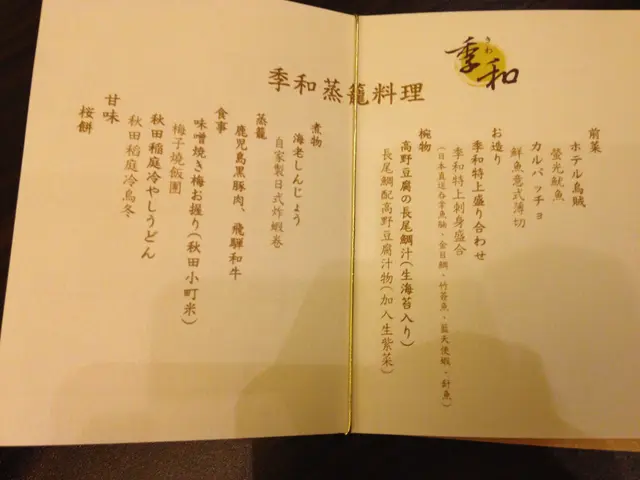 季和
きわ
季和蒸籠料理
前菜
ホテル烏賊
螢光魷魚
カルパッチョ
鮮魚意式薄切
お造り
季和特上盛り合わせ
季和特上刺身盛合
(日本直送吞拿魚腩・金目鯛・竹莢魚・藍天使蝦・針魚)
椀物
高野豆腐の長尾鯛汁(生海苔入り)
長尾鯛配高野豆腐汁物(加入生紫菜)
煮物
海老しんじょう
自家製日式炸蝦卷
蒸籠
鹿児島黒豚肉、飛騨和牛
食事
味噌焼き梅お握り(秋田小町米)
梅子燒飯團
秋田稲庭冷やしうどん
秋田稻庭冷烏冬
甘味
桜餅